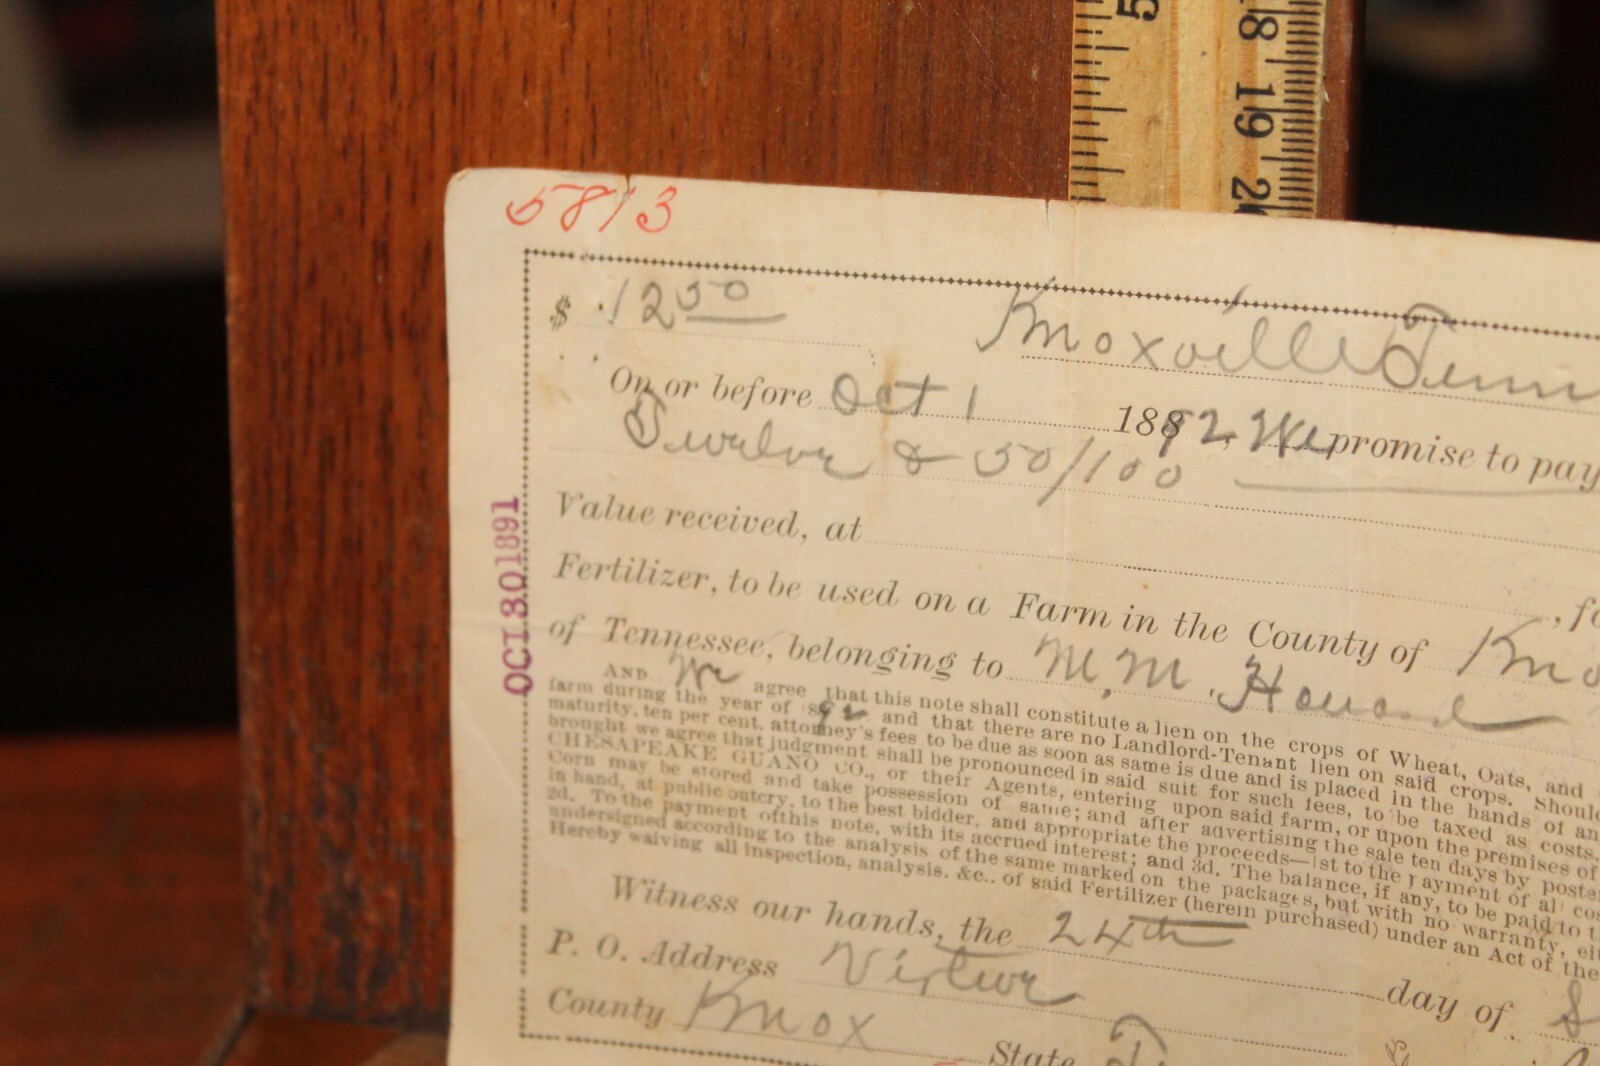 5
18 19 20
5813
$ 12 50
Knoxville Tenn
On or before Oct 1 1892, We promise to pay
Twelve & 50/100
Value received, at
Fertilizer, to be used on a Farm in the County of Kno
of Tennessee, belonging to M. M. Howard
AND We agree that this note shall constitute a lien on the crops of Wheat, Oats, and
farm during the year of 892 and that there are no Landlord-Tenant lien on said crops. Should
maturity, ten per cent. attorney's fees to be due as soon as same is due and is placed in the hands of an
brought we agree that judgment shall be pronounced in said suit for such fees, to be taxed as costs.
CHESAPEAKE GUANO CO., or their Agents, entering upon said farm, or upon the premises of
Corn may be stored and take possession of same; and after advertising the sale ten days by poste
in hand, at public outcry, to the best bidder, and appropriate the proceeds—1st to the payment of all cos
2d. To the payment of this note, with its accrued interest; and 3d. The balance, if any, to be paid to t
undersigned according to the analysis of the same marked on the packages, but with no warranty, eit
Hereby waiving all inspection, analysis, &c., of said Fertilizer (herein purchased) under an Act of the
Witness our hands, the 24th day of S
P. O. Address Virtue
County Knox State T
OCT 30 1891